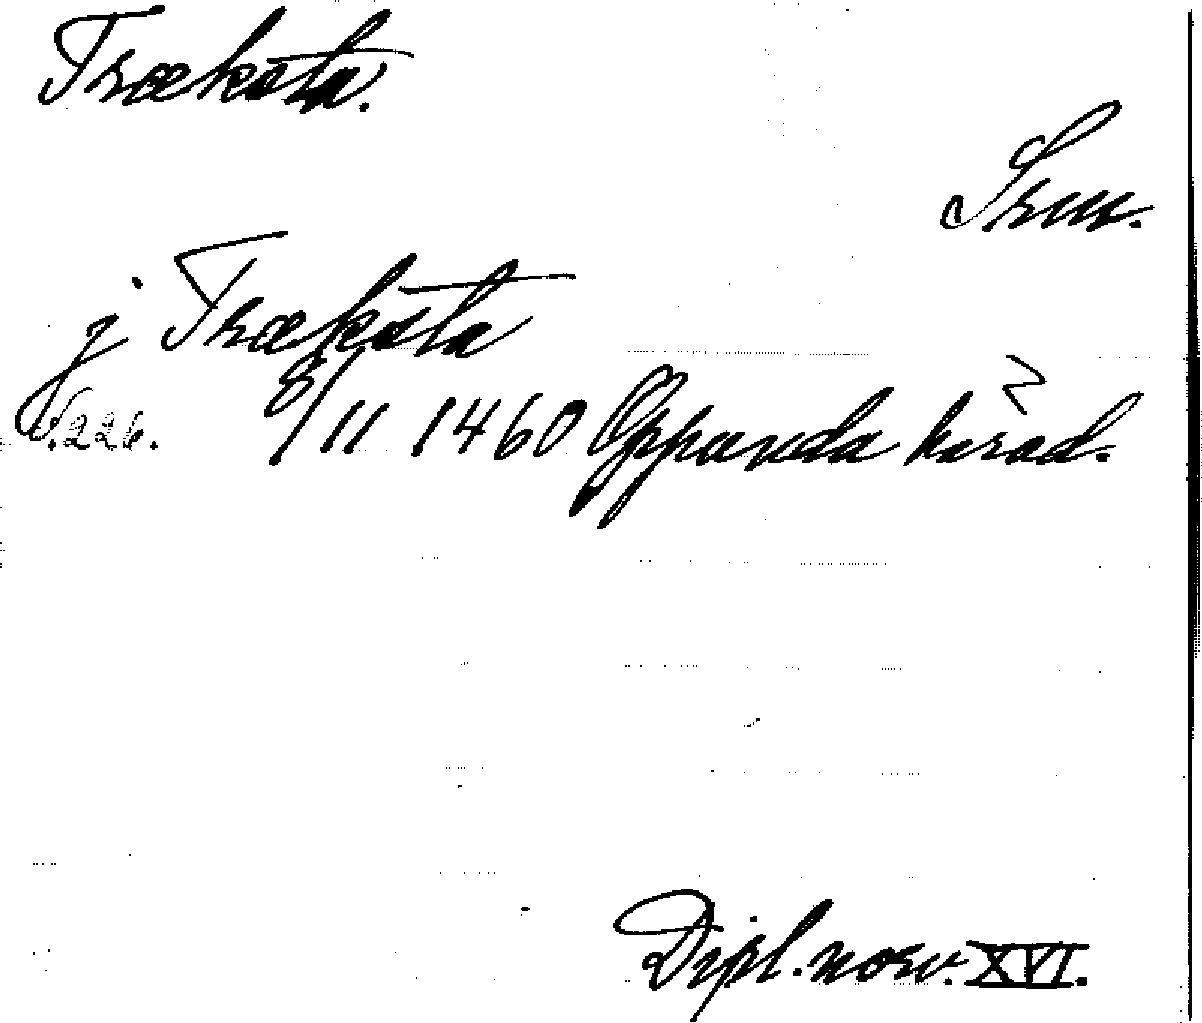 Trækøta.
Srm.
j Trækøta
s.226. 8/11 1460 Oppunda härad.
Dipl. norv. XVI.